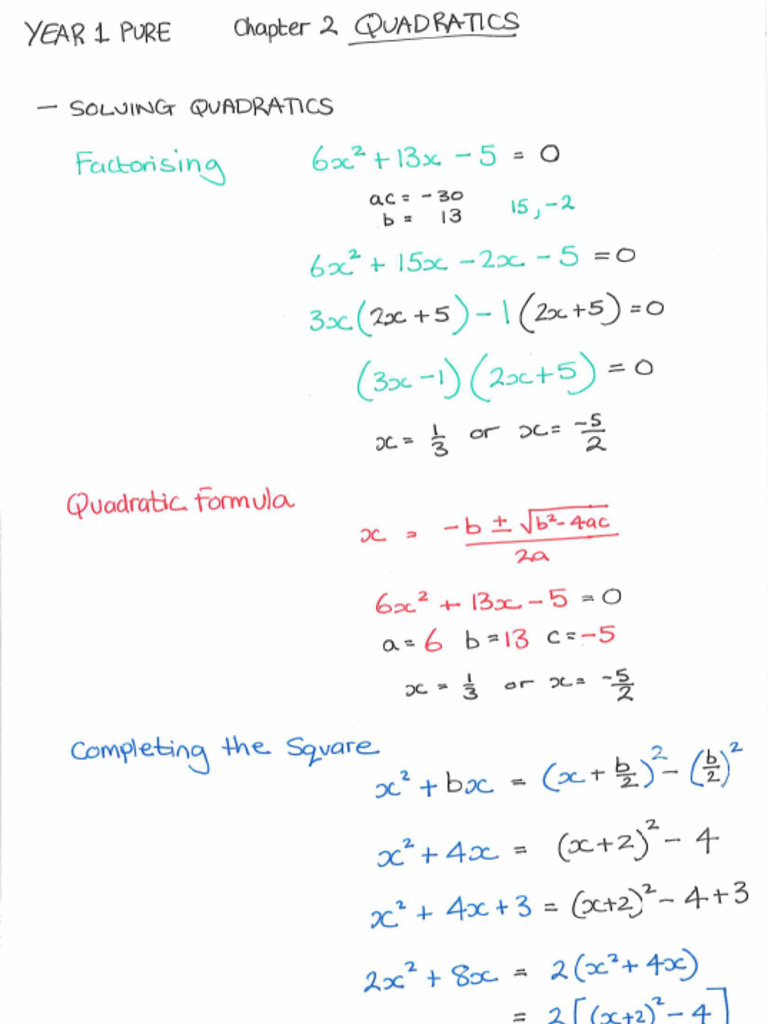 YEAR 1 PURE Chapter 2 QUADRATICS
— SOLVING QUADRATICS
Factorising 6x² + 13x - 5 = 0
ac = -30
b = 13 15, -2
6x² + 15x - 2x - 5 = 0
3x(2x + 5) - 1(2x + 5) = 0
(3x - 1)(2x + 5) = 0
x = 1/3 or x = -5/2
Quadratic Formula
x = (-b ± √(b² - 4ac))/2a
6x² + 13x - 5 = 0
a = 6 b = 13 c = -5
x = 1/3 or x = -5/2
Completing the Square
x² + bx = (x + b/2)² - (b/2)²
x² + 4x = (x+2)² - 4
x² + 4x + 3 = (x+2)² - 4 + 3
2x² + 8x = 2(x² + 4x)
= 2[(x+2)² - 4]